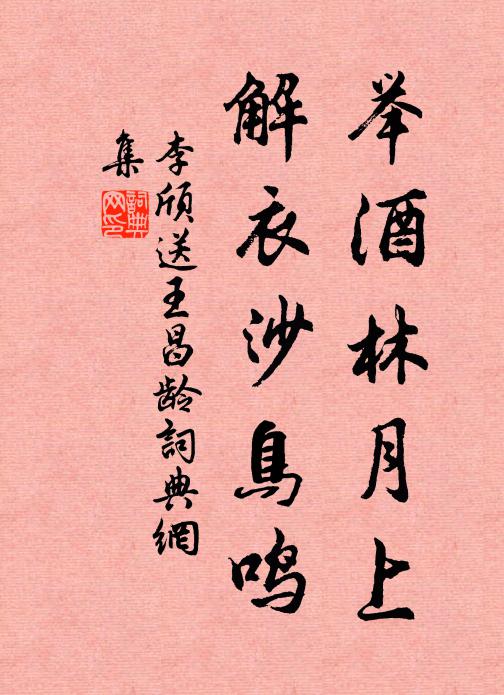 举酒林月上
解衣沙鸟鸣
李颀送王昌龄詞典網
集
詞典
网印